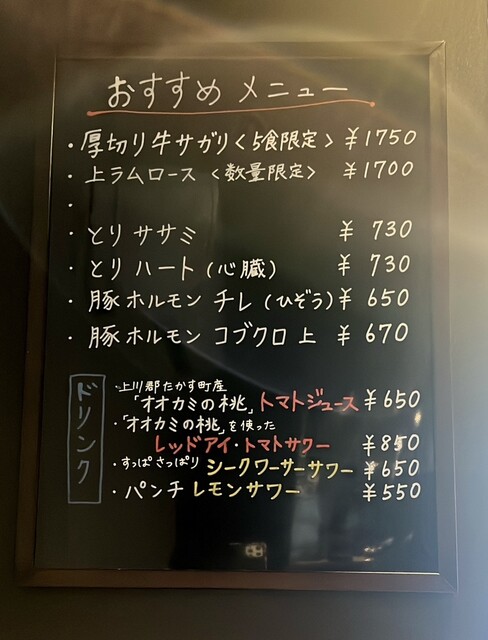 おすすめ メニュー
・厚切り牛サガリ＜5食限定＞ ￥1750
・上ラムロース ＜数量限定＞ ￥1700
・
・とり ササミ ￥730
・とり ハート（心臓） ￥730
・豚ホルモン チレ（ひぞう）￥650
・豚ホルモン コブクロ 上 ￥670
ドリンク
・上川郡たかす町産
「オオカミの桃」トマトジュース ￥650
・「オオカミの桃」を使った
レッドアイ・トマトサワー ￥850
・すっぱさっぱり シークワーサーサワー ￥650
・パンチレモンサワー ￥550